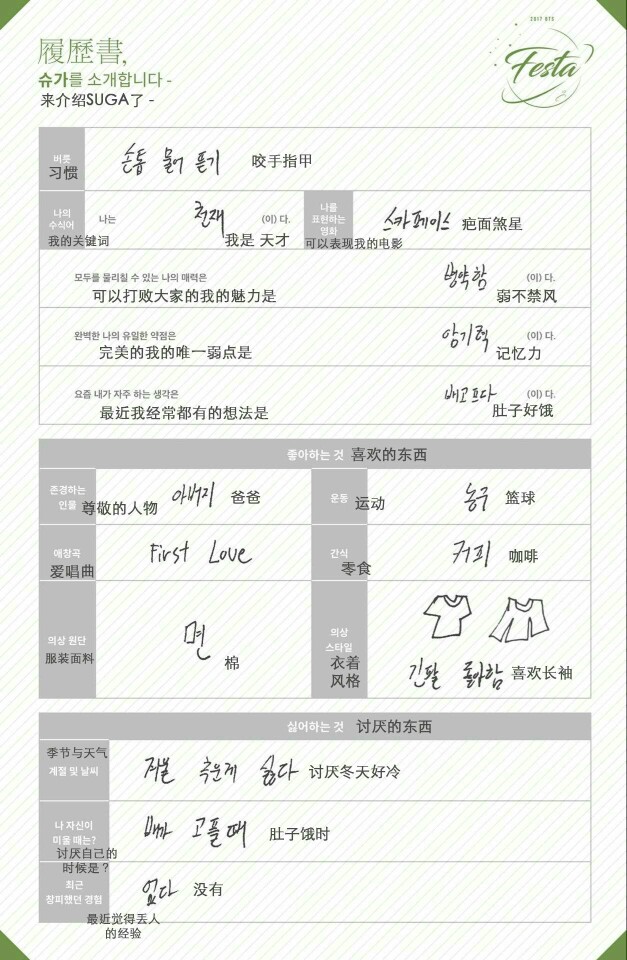 2017 BTS
Festa
履歷書,
슈가를 소개합니다 -
来介绍SUGA了 -
버릇
习惯
손톱 물어 뜯기
咬手指甲
나의
수식어
我的关键词
나는 천재 (이) 다.
我是 天才
나를
표현하는
영화
可以表现我的电影
스카페이스 疤面煞星
모두를 물리칠 수 있는 나의 매력은 병약함 (이) 다.
可以打败大家的我的魅力是 弱不禁风
완벽한 나의 유일한 약점은 암기력 (이) 다.
完美的我的唯一弱点是 记忆力
요즘 내가 자주 하는 생각은 배고프다 (이) 다.
最近我经常都有的想法是 肚子好饿
좋아하는 것 喜欢的东西
존경하는
인물 尊敬的人物
아버지 爸爸
운동 运动
농구 篮球
애창곡
爱唱曲
First Love
간식
零食
커피 咖啡
의상 원단
服装面料
면
棉
의상
스타일
衣着
风格
긴팔 좋아함 喜欢长袖
싫어하는 것 讨厌的东西
季节与天气
계절 및 날씨
겨울 추운게 싫다 讨厌冬天好冷
나 자신이
미울 때는?
讨厌自己的
时候是？
배가 고플때 肚子饿时
최근
창피했던 경험
最近觉得丢人
的经验
없다 没有